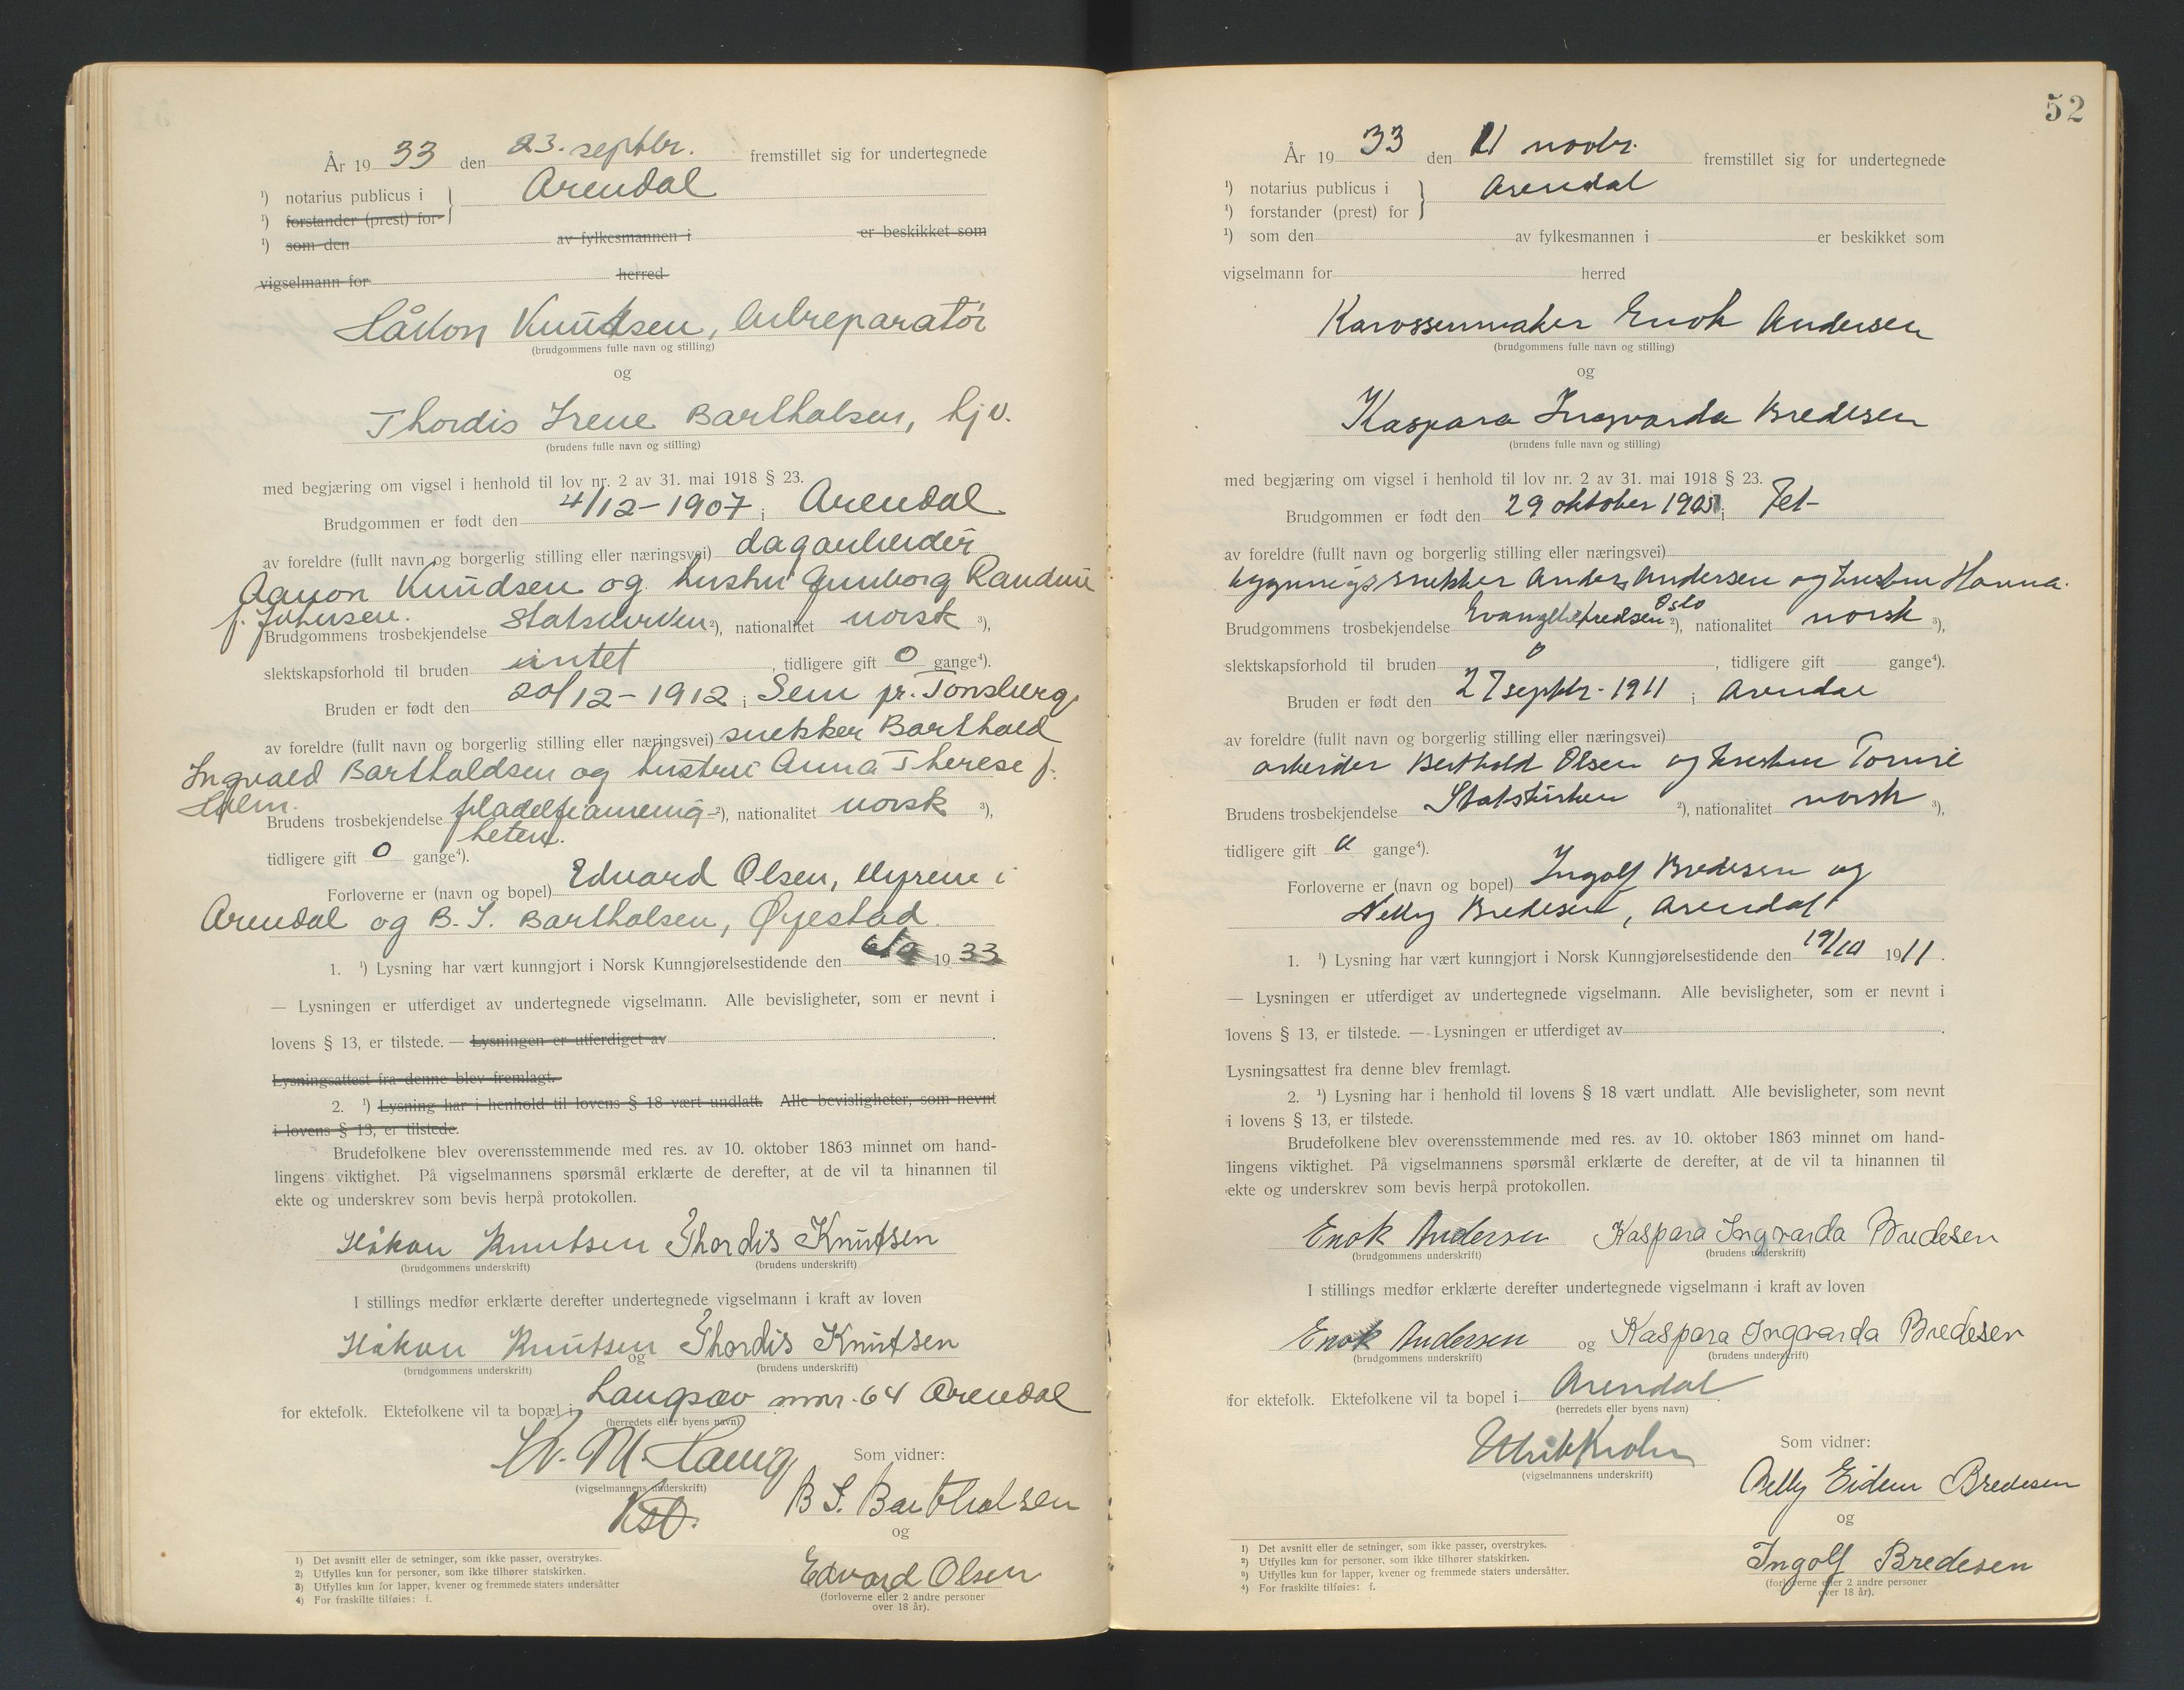 År 1933 den 23. septbr. fremstillet sig for undertegnede
¹) notarius publicus i Arendal
¹) forstander (prest) for
¹) som den av fylkesmannen i er beskikket som
vigselmann for herred
Håkon Knudsen,
(brudgommens fulle navn og stilling)
og
Thordis Irene Bartholsen, hjv.
(brudens fulle navn og stilling)
med begjæring om vigsel i henhold til lov nr. 2 av 31. mai 1918 § 23.
Brudgommen er født den 4/12-1907 i Arendal
av foreldre (fullt navn og borgerlig stilling eller næringsvei) dagarbeider
Aanon Knudsen og hustru Gunborg Randine
f. Johnsen.
Brudgommens trosbekjendelse Statskirken ²), nationalitet norsk ³),
slektskapsforhold til bruden intet, tidligere gift 0 gange⁴).
Bruden er født den 20/12-1912 i Sem pr. Tønsberg
av foreldre (fullt navn og borgerlig stilling eller næringsvei) snekker Barthold
Ingvald Bartholdsen og hustru Anna Therese f.
Holm.
Brudens trosbekjendelse filadelfiamenig- ²), nationalitet norsk ³),
heten.
tidligere gift 0 gange⁴).
Forloverne er (navn og bopel) Edvard Olsen, Myrene i
Arendal og B. I. Bartholsen, Øyestad.
1. ¹) Lysning har vært kunngjort i Norsk Kunngjørelsestidende den 6/9 1933
— Lysningen er utferdiget av undertegnede vigselmann. Alle bevisligheter, som er nevnt i
lovens § 13, er tilstede. — Lysningen er utferdiget av .
Lysningsattest fra denne blev fremlagt.
2. ¹) Lysning har i henhold til lovens § 18 vært undlatt. Alle bevisligheter, som nevnt
i lovens § 13, er tilstede.
Brudefolkene blev overensstemmende med res. av 10. oktober 1863 minnet om hand-
lingens viktighet. På vigselmannens spørsmål erklærte de derefter, at de vil ta hinannen til
ekte og underskrev som bevis herpå protokollen.
Håkon Knutsen Thordis Knutsen
(brudgommens underskrift) (brudens underskrift)
I stillings medfør erklærte derefter undertegnede vigselmann i kraft av loven
Håkon Knutsen og Thordis Knutsen
(brudgommens underskrift) (brudens underskrift)
for ektefolk. Ektefolkene vil ta bopæl i Langsæv mnr. 64 Arendal
(herredets eller byens navn)
Som vidner:
(vigselmannens underskrift)
Kst.
B I. Bartholsen
og
Edvard Olsen
(forloverne eller 2 andre personer
over 18 år).
1) Det avsnitt eller de setninger, som ikke passer, overstrykes.
2) Utfylles kun for personer, som ikke tilhører statskirken.
3) Utfylles kun for lapper, kvener og fremmede staters undersåtter
4) For fraskilte tilføies: f.
52
År 1933 den 11 novbr. fremstillet sig for undertegnede
¹) notarius publicus i Arendal
¹) forstander (prest) for
¹) som den av fylkesmannen i er beskikket som
vigselmann for herred
Karossenmaker Enok Andersen
(brudgommens fulle navn og stilling)
og
Kaspara Ingvarda Bredesen
(brudens fulle navn og stilling)
med begjæring om vigsel i henhold til lov nr. 2 av 31. mai 1918 § 23.
Brudgommen er født den 29 oktober 1905 i Fet
av foreldre (fullt navn og borgerlig stilling eller næringsvei)
bygningssnekker Anders Andersen og hustru Hanna.
Brudgommens trosbekjendelse Oslo ²), nationalitet norsk ³),
slektskapsforhold til bruden 0, tidligere gift — gange⁴).
Bruden er født den 27 septbr. 1911 i Arendal
av foreldre (fullt navn og borgerlig stilling eller næringsvei)
arbeider Berthold Olsen og hustru Tomine
Brudens trosbekjendelse Statskirken ²), nationalitet norsk ³),
tidligere gift 0 gange⁴).
Forloverne er (navn og bopel) Ingolf Bredesen og
Nelly Bredesen, Arendal
1. ¹) Lysning har vært kunngjort i Norsk Kunngjørelsestidende den 19/10 1911.
— Lysningen er utferdiget av undertegnede vigselmann. Alle bevisligheter, som er nevnt i
lovens § 13, er tilstede. — Lysningen er utferdiget av .
Lysningsattest fra denne blev fremlagt.
2. ¹) Lysning har i henhold til lovens § 18 vært undlatt. Alle bevisligheter, som nevnt
i lovens § 13, er tilstede.
Brudefolkene blev overensstemmende med res. av 10. oktober 1863 minnet om hand-
lingens viktighet. På vigselmannens spørsmål erklærte de derefter, at de vil ta hinannen til
ekte og underskrev som bevis herpå protokollen.
Enok Andersen Kaspara Ingvarda Bredesen
(brudgommens underskrift) (brudens underskrift)
I stillings medfør erklærte derefter undertegnede vigselmann i kraft av loven
Enok Andersen og Kaspara Ingvarda Bredesen
(brudgommens underskrift) (brudens underskrift)
for ektefolk. Ektefolkene vil ta bopel i Arendal
(herredets eller byens navn)
Ulrik Krohn Som vidner:
(vigselmannens underskrift)
Nelly Eidem Bredesen
og
Ingolf Bredesen
(forloverne eller 2 andre personer
over 18 år).
1) Det avsnitt eller de setninger, som ikke passer, overstrykes.
²) Utfylles kun for personer, som ikke tilhører statskirken.
³) Utfylles kun for lapper, kvener og fremmede staters undersåtter.
⁴) For fraskilte tilføies: f.